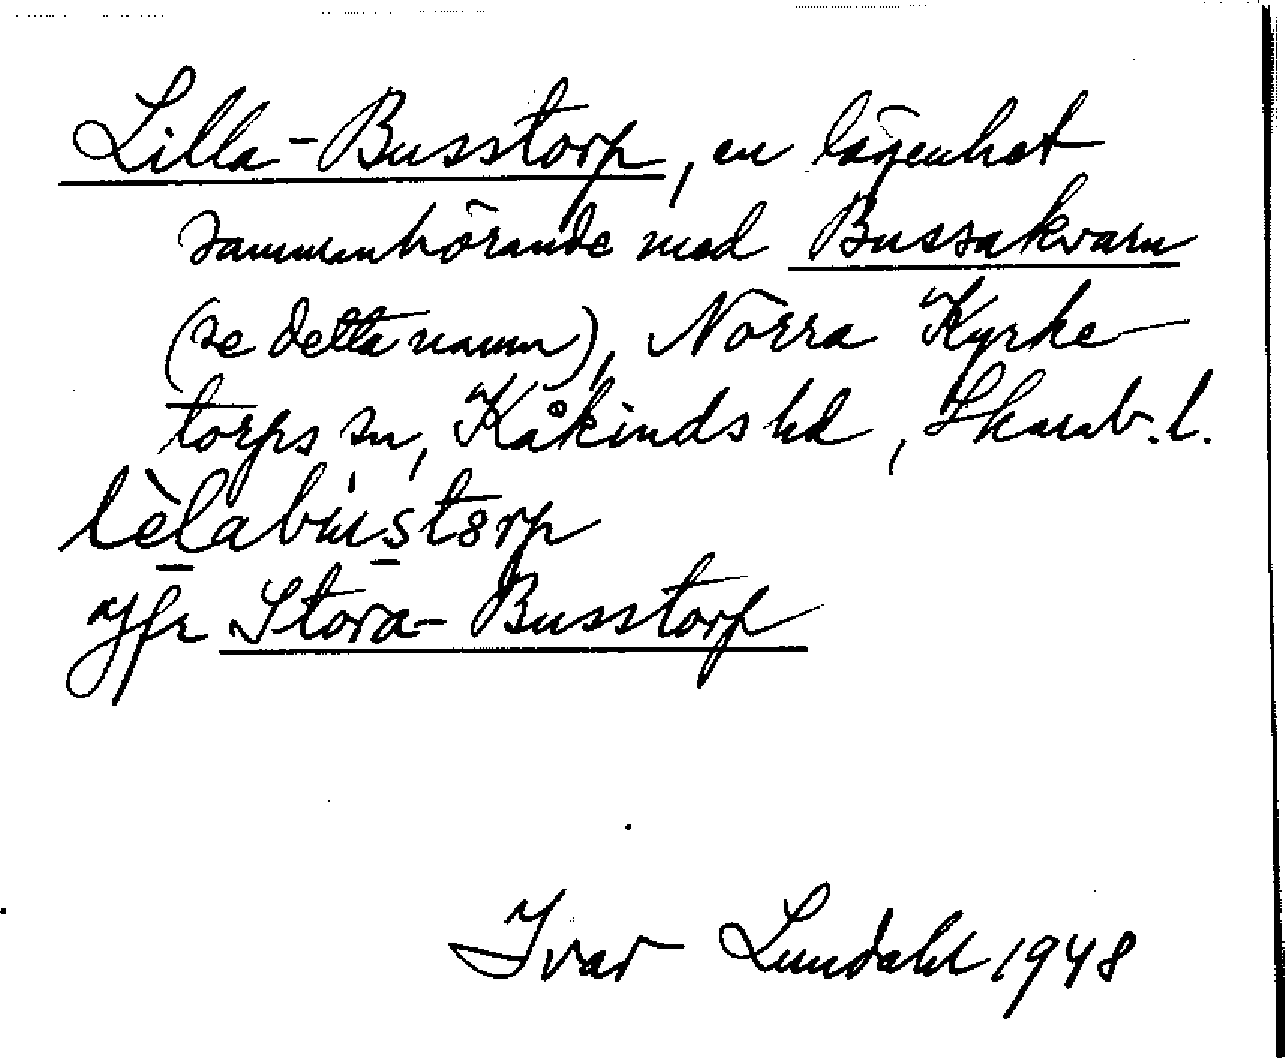 Lilla-Busstorp, en lägenhet
sammanhörande med Bussakvarn
(se detta namn), Norra Kyrke-
torps sn, Kåkinds hd, Skarab. l.
lèlabùstørp
Jfr Stora-Busstorp
Ivar Lundahl 1948